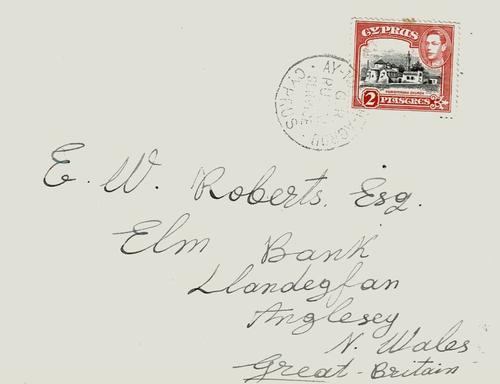 CYPRUS
2 PIASTRES
G.R.
RURAL
SERVICE
CYPRUS
E. W. Roberts, Esq.
Elm Bank
Llandegfan
Anglesey
N. Wales
Great-Britain